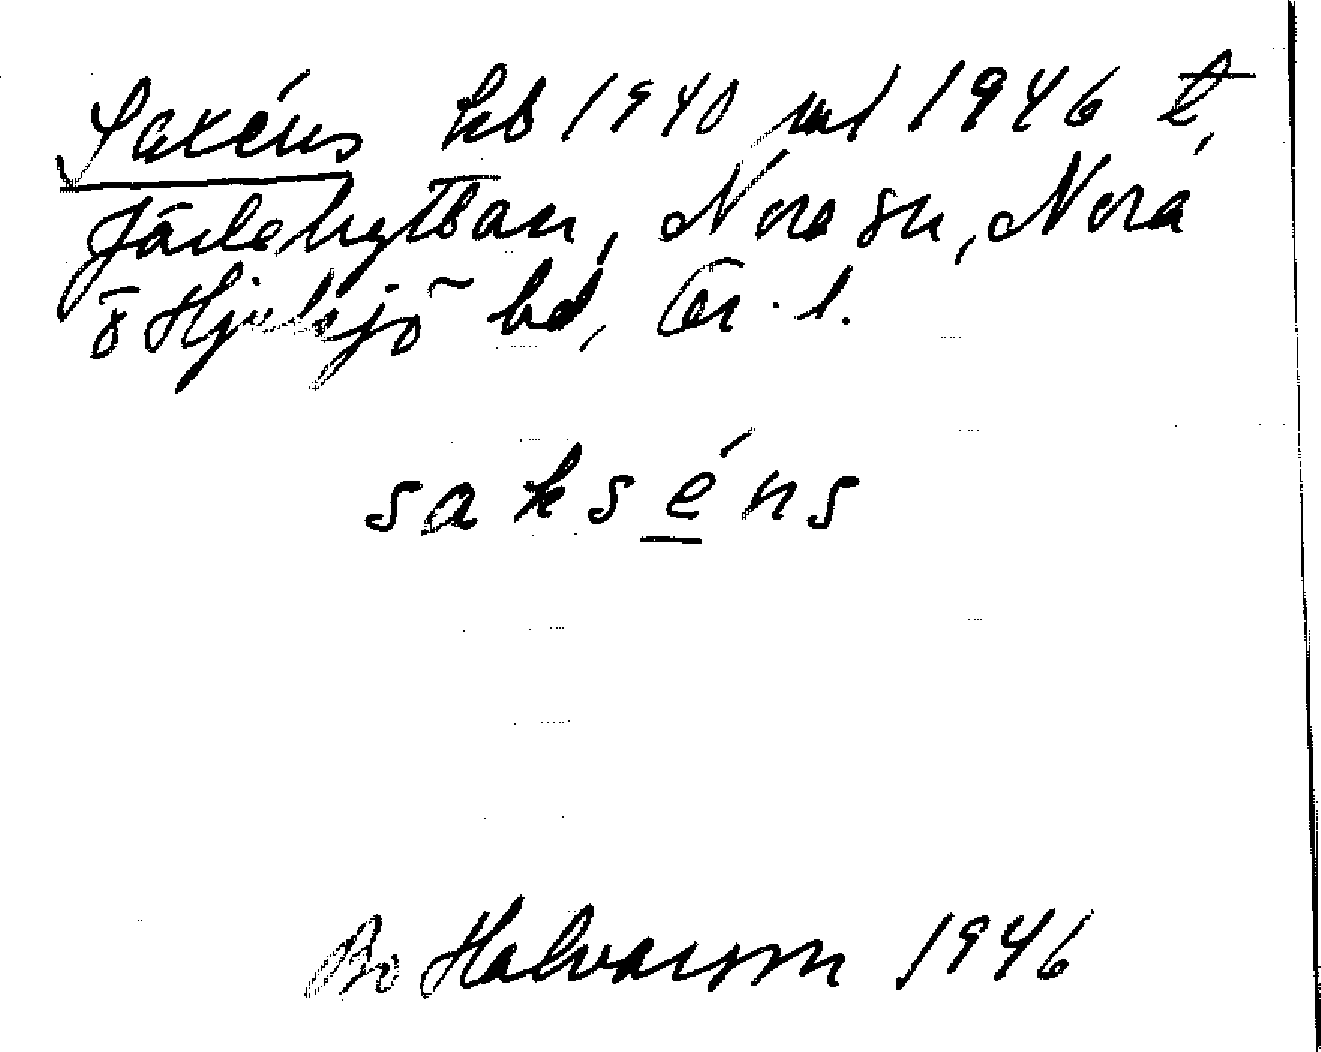 Saxéns kb 1940 ml 1946 t,
Järlehyttan, Nora sn, Nora
o Hjulsjö bd, Ör. l.
saks é ns
Bo Halvarson 1946